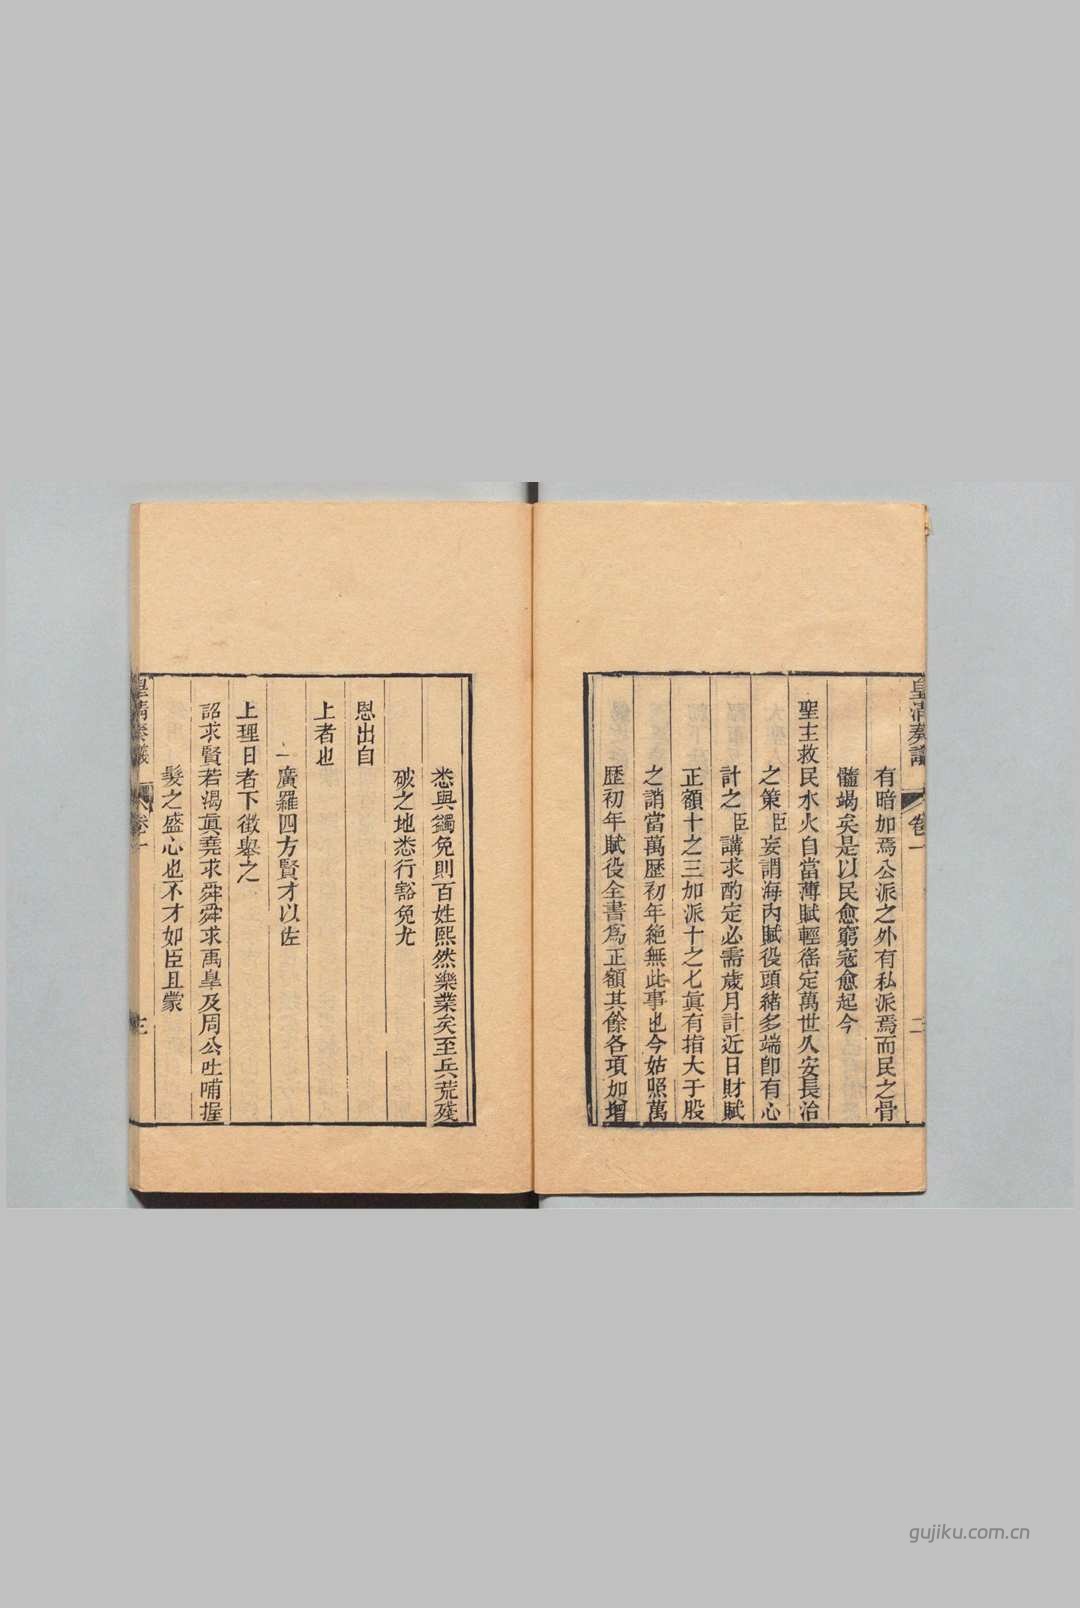 皇清奏議 卷一 二
有暗加焉公派之外有私派焉而民之骨
髓竭矣是以民愈窮寇愈起今
聖主救民水火自當薄賦輕徭定萬世久安長治
之策臣妄謂海內賦役頭緒多端卽有心
計之臣講求酌定必需歲月計近日財賦
正額十之三加派十之七眞有指大于股
之誚當萬歷初年絶無此事也今姑照萬
歷初年賦役全書爲正額其餘各項加增
悉與蠲免則百姓熙然樂業矣至兵荒殘
破之地悉行豁免尤
恩出自
上者也
一廣羅四方賢才以佐
上理日者下徵舉之
詔求賢若渴眞堯求舜舜求禹皐及周公吐哺握
髮之盛心也不才如臣且蒙
皇清奏議 卷一 三
gujiku.com.cn